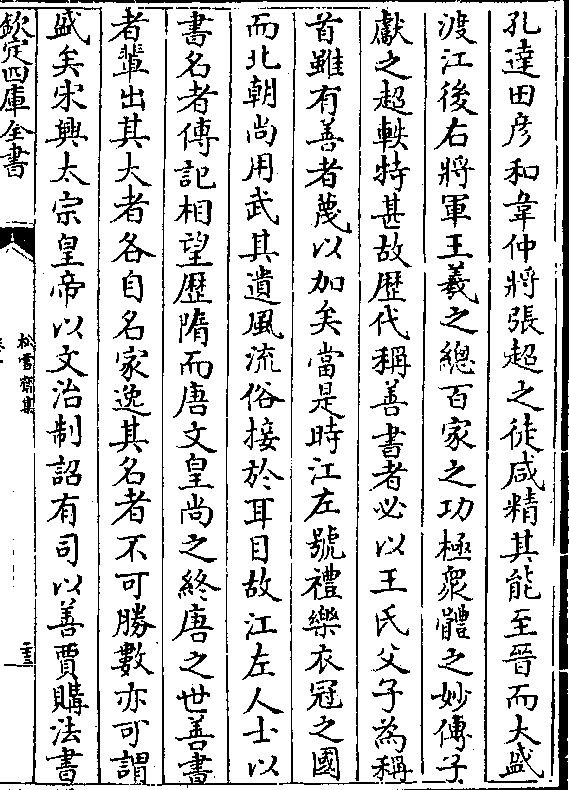 孔達田彦和韋仲將張超之徒咸精其能至晉而大盛
渡江後右將軍王羲之總百家之功極衆體之妙傳子
獻之超軼特甚故歴代稱善書者必以王氏父子為稱
首雖有善者蔑以加矣當是時江左號禮樂衣冠之國
而北朝尚用武其遺風流俗接於耳目故江左人士以
書名者傳記相望歴隋而唐文皇尚之終唐之世善書
者輩出其大者各自名家逸其名者不可勝數亦可謂
盛矣宋興太宗皇帝以文治制詔有司以善賈購法書
欽定四庫全書
松雪齋集
二十三